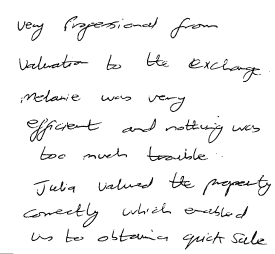 very professional from
valuation to the exchange.
Melanie was very
efficient and nothing was
too much trouble.
Julia valued the property
correctly which enabled
us to obtain a quick sale